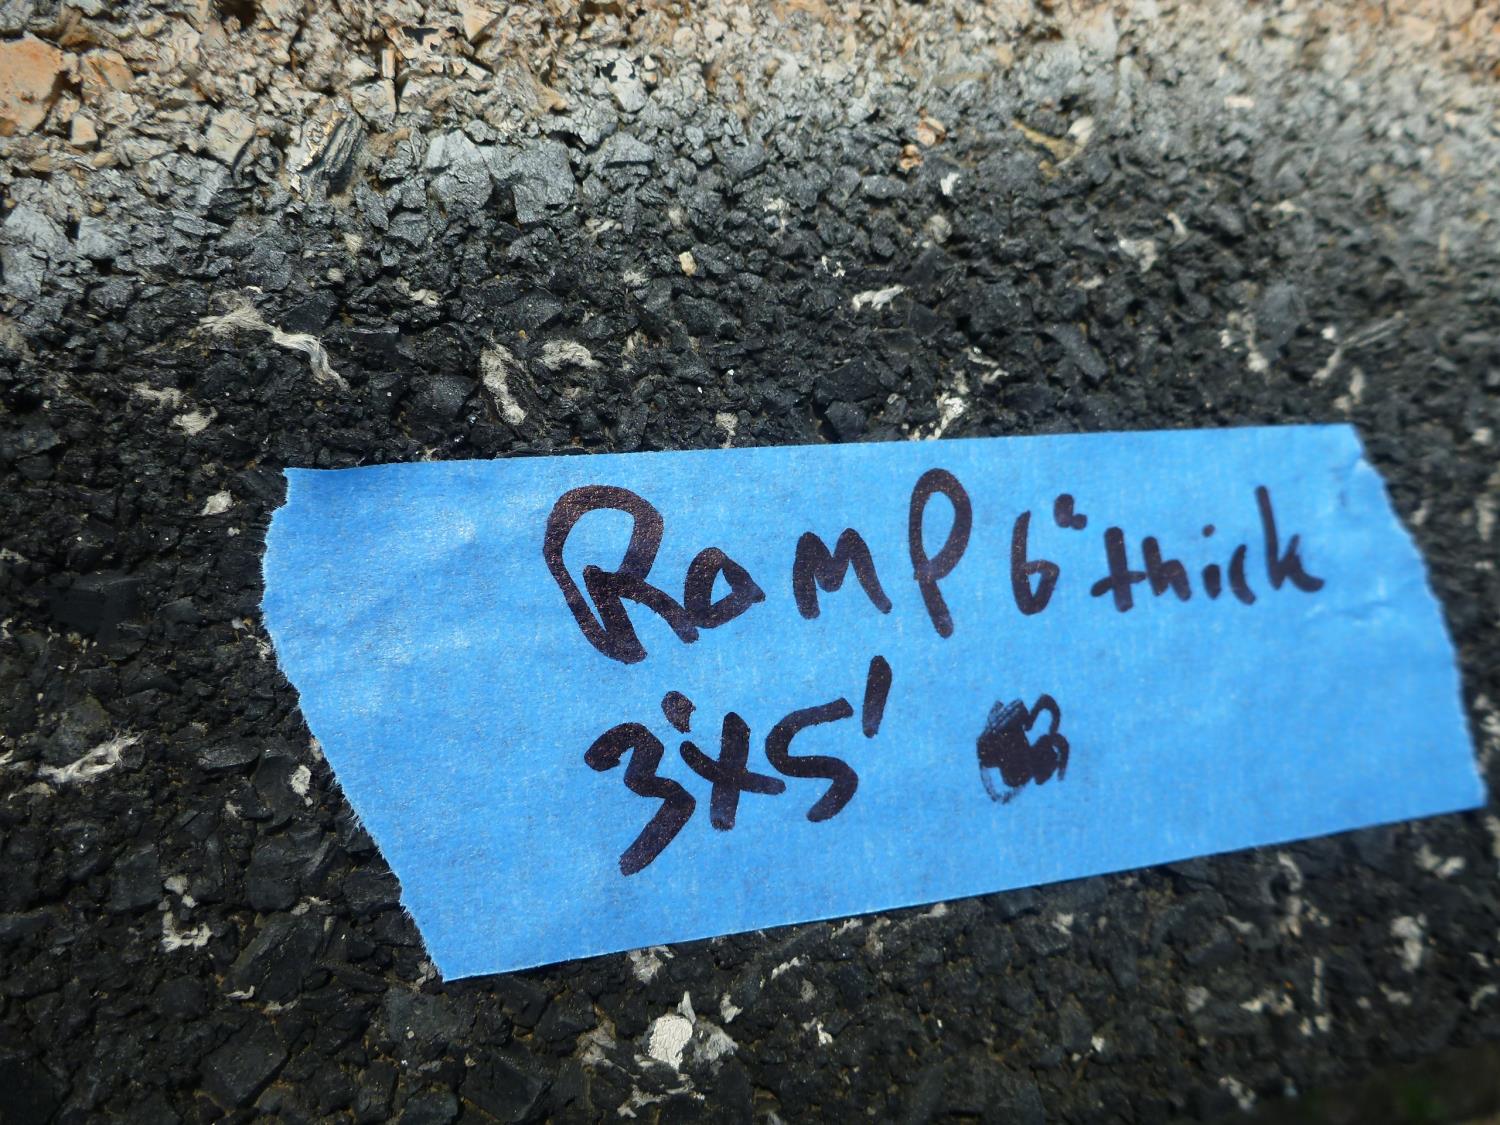 Ramp 6" thick
3'x5'